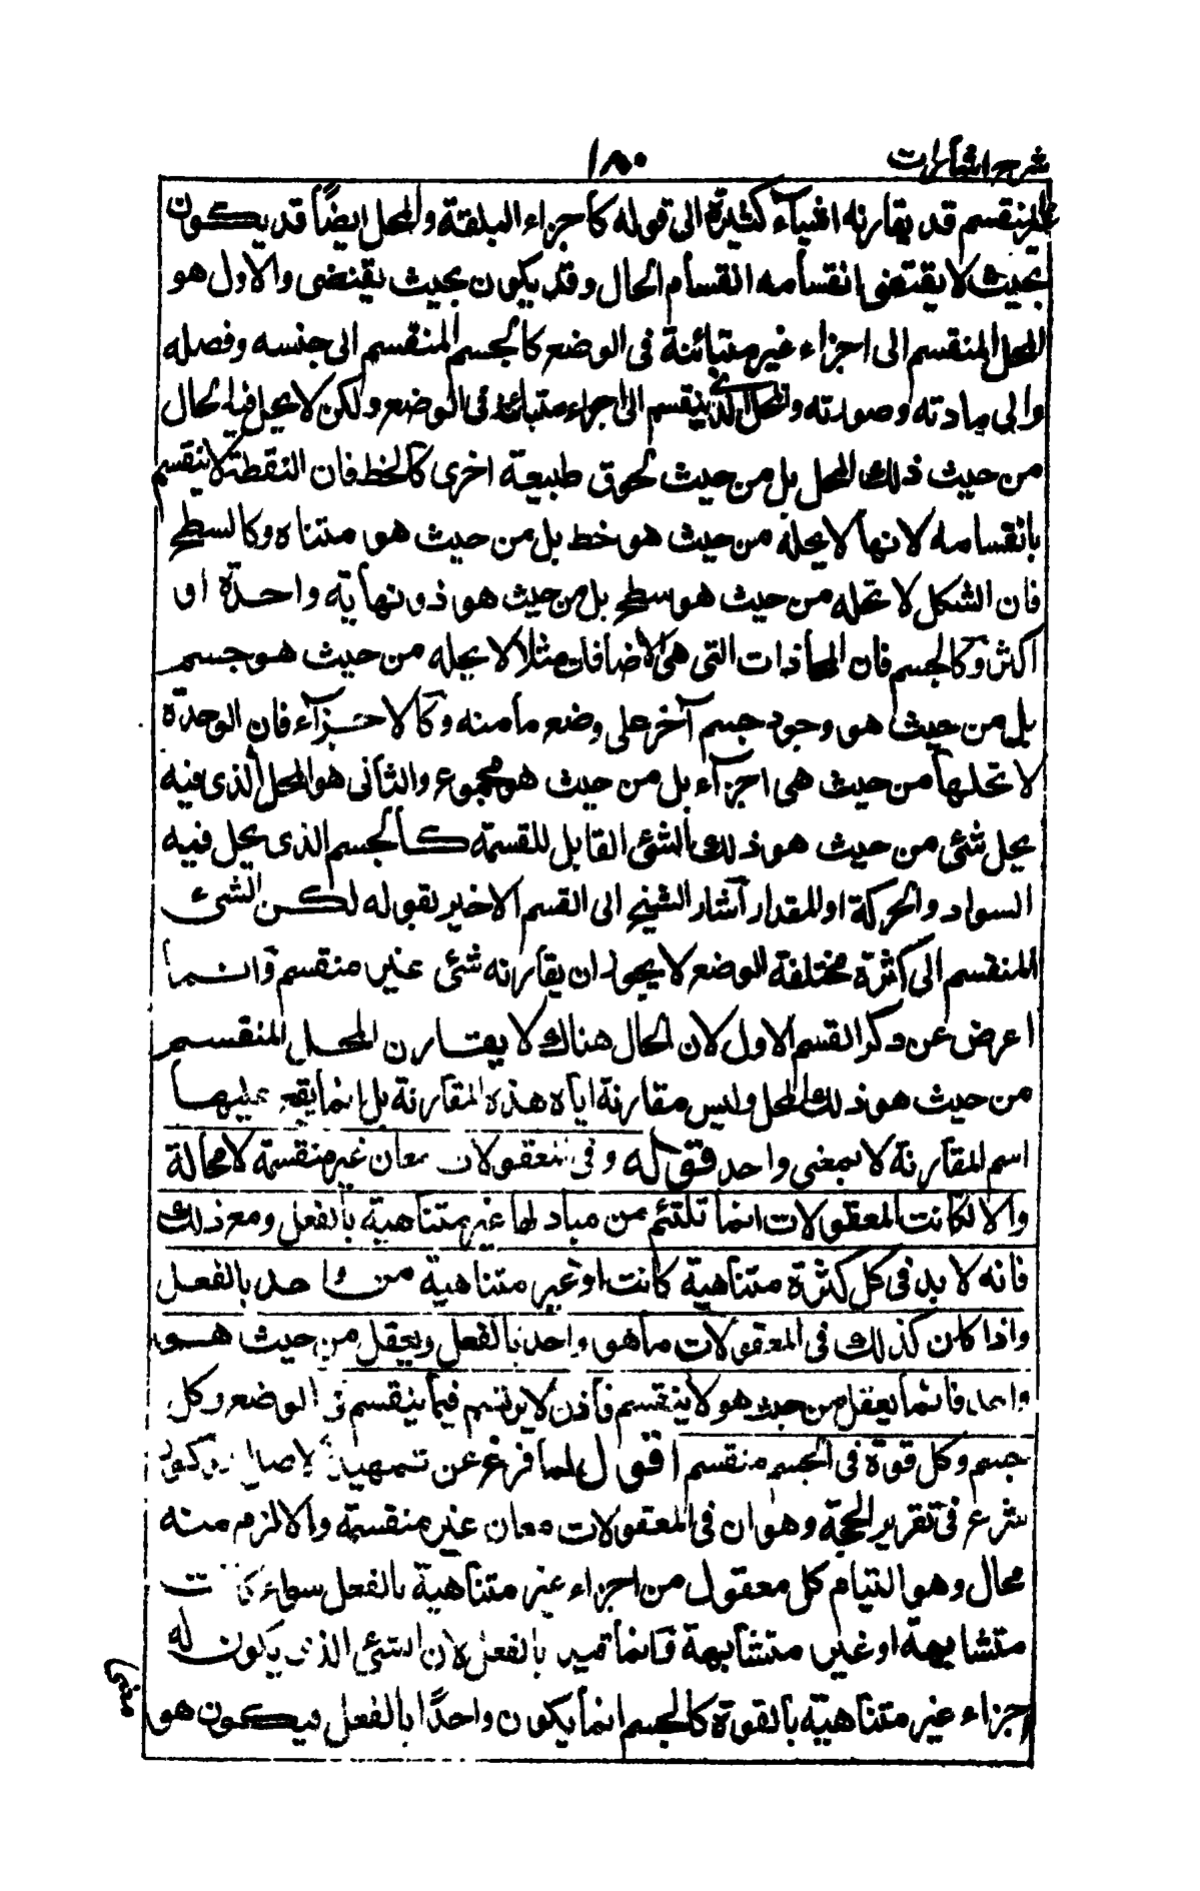 شرح اشارات
١٨٠
الغير المنقسم قد يقارنه اشياء كثيرة الى قوله كأجزاء البلقة والمحل ايضاً قد يكون
بحيث لا يقتضى انقسامه انقسام الحال وقد يكون بحيث يقتضى والاول هو
المحل المنقسم الى اجزاء غير متبائنة فى الوضع كالجسم المنقسم الى جنسه وفصله
والى مادته وصورته والمحل الذى ينقسم الى اجزاء متبائنة فى الوضع ولكن لا يحل فيه الحال
من حيث ذلك المحل بل من حيث لحوق طبيعة اخرى كالخط فان النقطة لا ينقسم
بانقسامه لانها لا يحله من حيث هو خط بل من حيث هو متناه وكالسطح
فان الشكل لا تحله من حيث هو سطح بل من حيث هو ذو نهاية واحدة او
اكثر وكالجسم فان المحاذات التى هى الاضافات مثلا لا يحله من حيث هو جسم
بل من حيث هو وجود جسم آخر على وضع ما منه وكالاجزاء فان الوحدة
لا تحلها من حيث هى اجزاء بل من حيث هو مجموع والثانى هو المحل الذى فيه
يحل شئ من حيث هو ذلك الشئ القابل للقسمة كالجسم الذى يحل فيه
السواد والحركة او المقدار اشار الشيخ الى القسم الاخير بقوله لكن الشئ
المنقسم الى كثرة مختلفة الوضع لا يجوز ان يقارنه شئ غير منقسم وانما
اعرض عن ذكر القسم الاول لان الحال هناك لا يقارن المحل المنقسم
من حيث هو ذلك المحل وليس مقارنة اياه هذه المقارنة بل انما يقع عليها
اسم المقارنة لا بمعنى واحد قوله وفى المعقولات معان غير منقسمة لا محالة
والا لكانت المعقولات انما تلتئم من مباد لها غير متناهية بالفعل ومع ذلك
فانه لا بد فى كل كثرة متناهية كانت او غير متناهية من واحد بالفعل
واذا كان كذلك فى المعقولات ما هو واحد بالفعل ويعقل من حيث هو
واحد فانما يعقل من حيث هو لا ينقسم فاذن لا يرتسم فيما ينقسم فى الوضع وكل
جسم وكل قوة فى الجسم منقسم اقول لما فرغ عن تمهيد الاصل
شرع فى تقرير الحجة وهو ان فى المعقولات معان غير منقسمة والا لزم منه
محال وهو التيام كل معقول من اجزاء غير متناهية بالفعل سواء كانت
متشابهة او غير متشابهة وانما قيد بالفعل لان الشئ الذى يكون له
اجزاء غير متناهية بالقوة كالجسم انما يكون واحدًا بالفعل فيكون هو